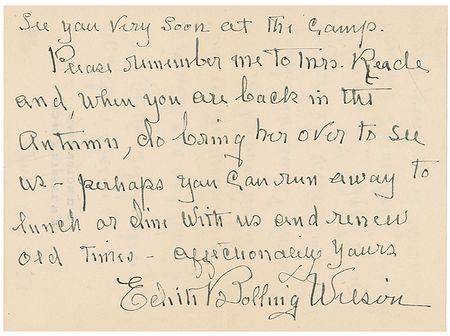 See you very soon at the Camp.
Please remember me to Mrs. Reade
and, when you are back in the
Autumn, do bring her over to see
us - perhaps you can run away to
lunch or dine with us and renew
old times - affectionately yours
Edith Bolling Wilson